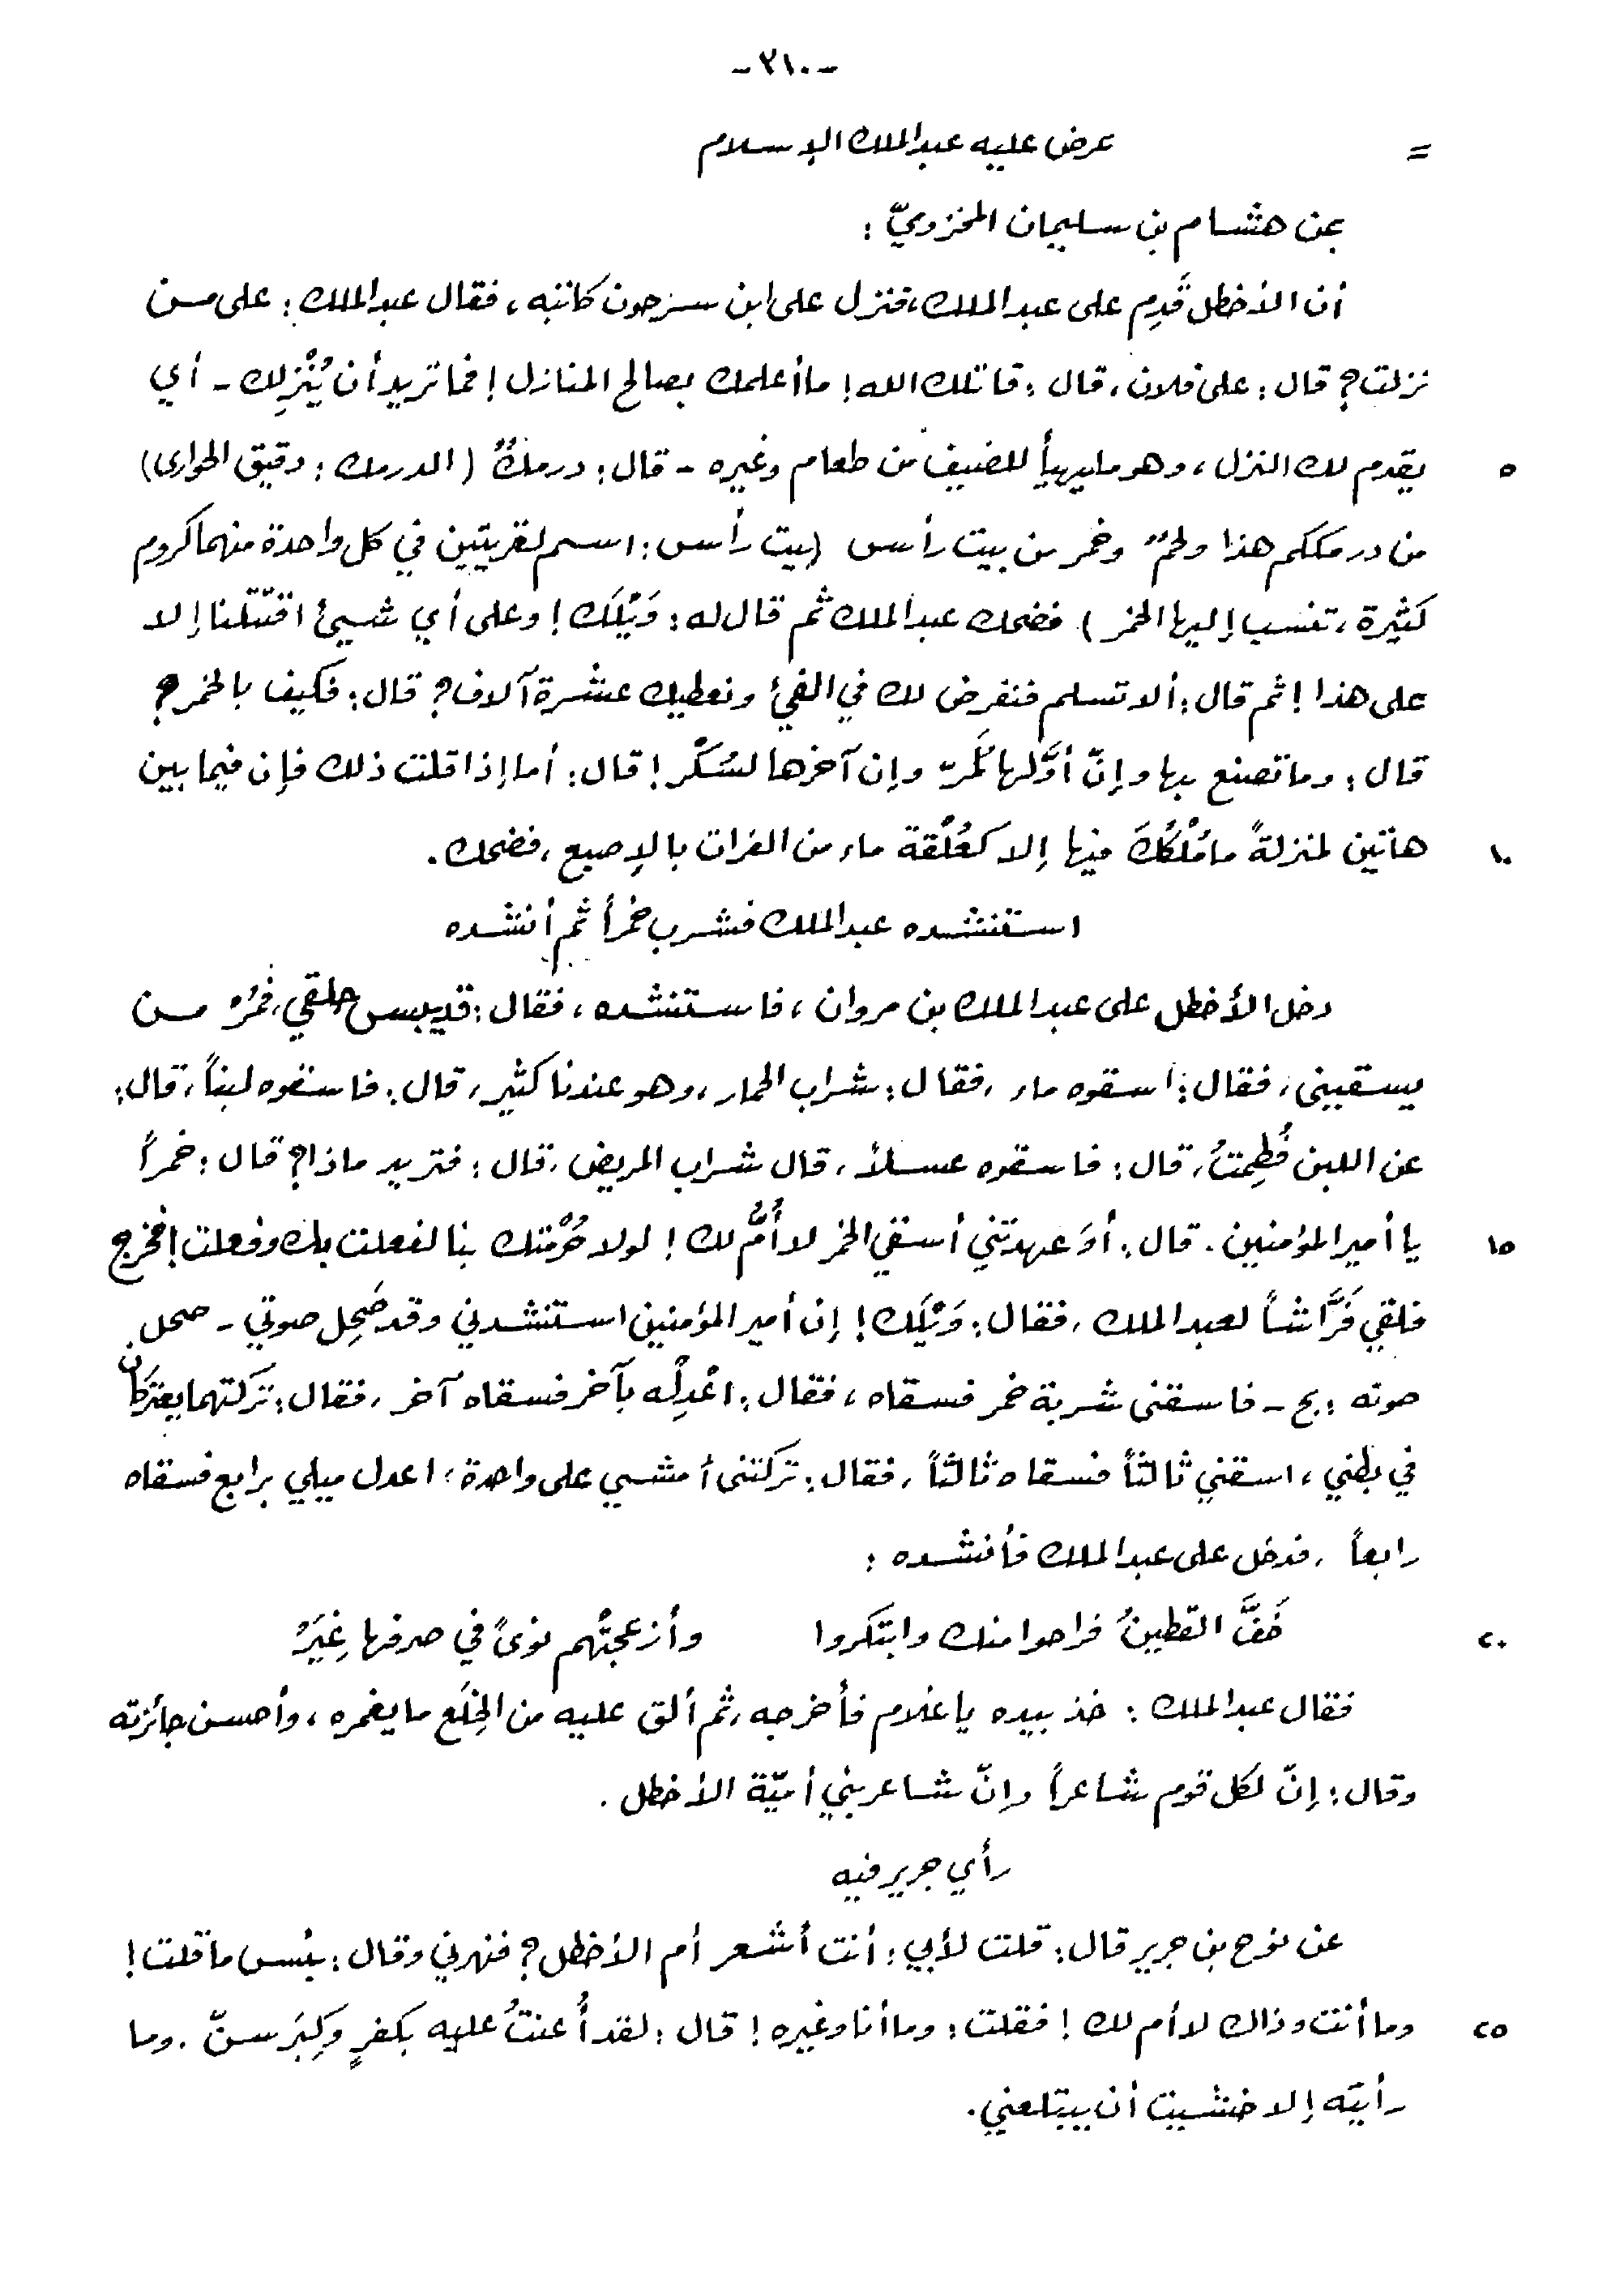 -٣١٠-
= عرض عليه عبدالملك الإسلام
عن هشام بن سليمان المخزوميّ :
أن الأخطل قَدِم على عبدالملك، فنزل على ابن سرجون كاتبه ، فقال عبدالملك : على من
نزلت؟ قال : على فلان ، قال : قاتلك الله ! ما أعلمك بصالح المنازل ! فما تريد أن يُنْزِلك - أي
٥ يقدم لك النزل ، وهو ما يهيأ للضيف من طعام وغيره - قال : درمكٌ ( الدرمك : دقيق الحوارى )
من درمككم هذا ولحمٌ وخمر من بيت رأس (بيت رأس : اسم لقريتين في كل واحدة منهما كروم
كثيرة ، تنسب إليها الخمر ) فضحك عبدالملك ثم قال له : وَيْلَك ! وعلى أي شيئ اقتتلنا إلا
على هذا ! ثم قال : ألا تسلم فنفرض لك في الفيئ ونعطيك عشرة آلاف ؟ قال : فكيف بالخمر ؟
قال : وما تصنع بها وإنّ أوَّلها لَمُرّ وإن آخرها لسُكْر ! قال : أما إذا قلت ذلك فإن فيما بين
١٠ هاتين لمنزلةً ما مُلْكُكَ فيها إلا كعُلْقة ماء من الفرات بالإصبع ، فضحك .
استنشده عبدالملك فشرب خمرأ ثم أنشده
دخل الأخطل على عبدالملك بن مروان ، فاستنشده ، فقال : قد يبس حلقي ، فمُرْ من
يسقيني ، فقال : اسقوه ماء ، فقال : شراب الحمار ، وهو عندنا كثير ، قال : فاسقوه لبناً ، قال :
عن اللبن فُطِمتُ ، قال : فاسقوه عسلاً ، قال شراب المريض ، قال : فتريد ماذا ؟ قال : خمراً
١٥ يا أمير المؤمنين . قال : أوَ عهدتَني أسقي الخمر لا أُمَّ لك ! لولا حُرْمتك بنا لفعلت بك وفعلت ! فخرج
فلقي فَرَّاشاً لعبد الملك ، فقال : وَيْلَك ! إن أمير المؤمنين استنشدني وقد صَحِل صوتي - صحل
صوته : بح - فاسقني شربة خمر فسقاه ، فقال : اعْدِلْه بآخر فسقاه آخر ، فقال : تركتهما يعتركان
في بطني ، اسقني ثالثاً فسقاه ثالثاً ، فقال : تركتني أمشي على واحدة ، اعدل ميلي برابع فسقاه
رابعاً ، فدخل على عبدالملك فأنشده :
٢٠ خَفَّ القطينُ فراحوا منك وابتكروا وأزعجتْهم نوىً في صرفها غِيَرُ
فقال عبدالملك : خذ بيده يا غلام فأخرجه ، ثم ألق عليه من الخِلَع ما يغمره ، وأحسن جائزته
وقال : إنّ لكل قوم شاعراً وإنّ شاعر بني أميّة الأخطل .
رأي جرير فيه
عن نوح بن جرير قال : قلت لأبي : أنت أشعر أم الأخطل ؟ فنهرني وقال : بئس ما قلت !
٢٥ وما أنت وذاك لا أم لك ! فقلت : وما أنا وغيره ! قال : لقد أُعنتُ عليه بكفرٍ وكِبَر سنّ . وما
رأيته إلا خشيت أن يبتلعني .